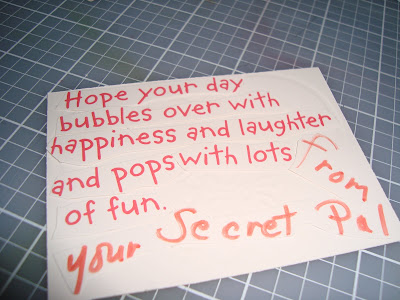 Hope your day
bubbles over with
happiness and laughter
and pops with lots
of fun.
From
your Secret Pal